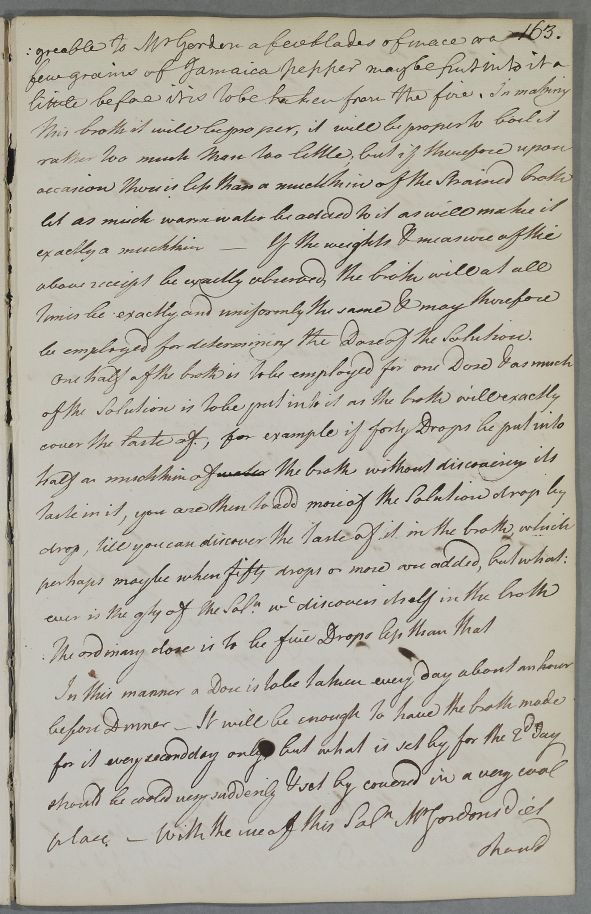 163.
:greable to Mr Gordon a few blades of mace or a
few grains of Jamaica pepper may be put into it a
little before it is to be taken from the fire. In making
this broth it will be proper, it will be proper to boil it
rather too much than too little, but if therefore upon
occasion there is less than a mutchkin of the strained broth
let as much warm water be added to it as will make it
exactly a mutchkin — If the weights & measure of the
above receipt be exactly observed, the broth will at all
times be exactly and uniformly the same & may therefore
be employed for determining the Dose of the Solution.
One half of the broth is to be employed for one Dose & as much
of the Solution is to be put into it as the broth will exactly
cover the taste of, for example if forty Drops be put into
half a mutchkin of water the broth without discovering its
taste in it, you are then to add more of the Solution drop by
drop, till you can discover the taste of it in the broth, which
perhaps may be when fifty drops or more are added, but what:
ever is the qty of the Soln wc discovers itself in the broth
The ordinary dose is to be five Drops less than that
In this manner a Dose is to be taken every day about an hour
before Dinner — It will be enough to have the broth made
for it every second day only but what is set by for the 2d Day
should be cool'd very suddenly & set by covered in a very cool
place. — With the use of this Soln Mr Gordons Diet
should